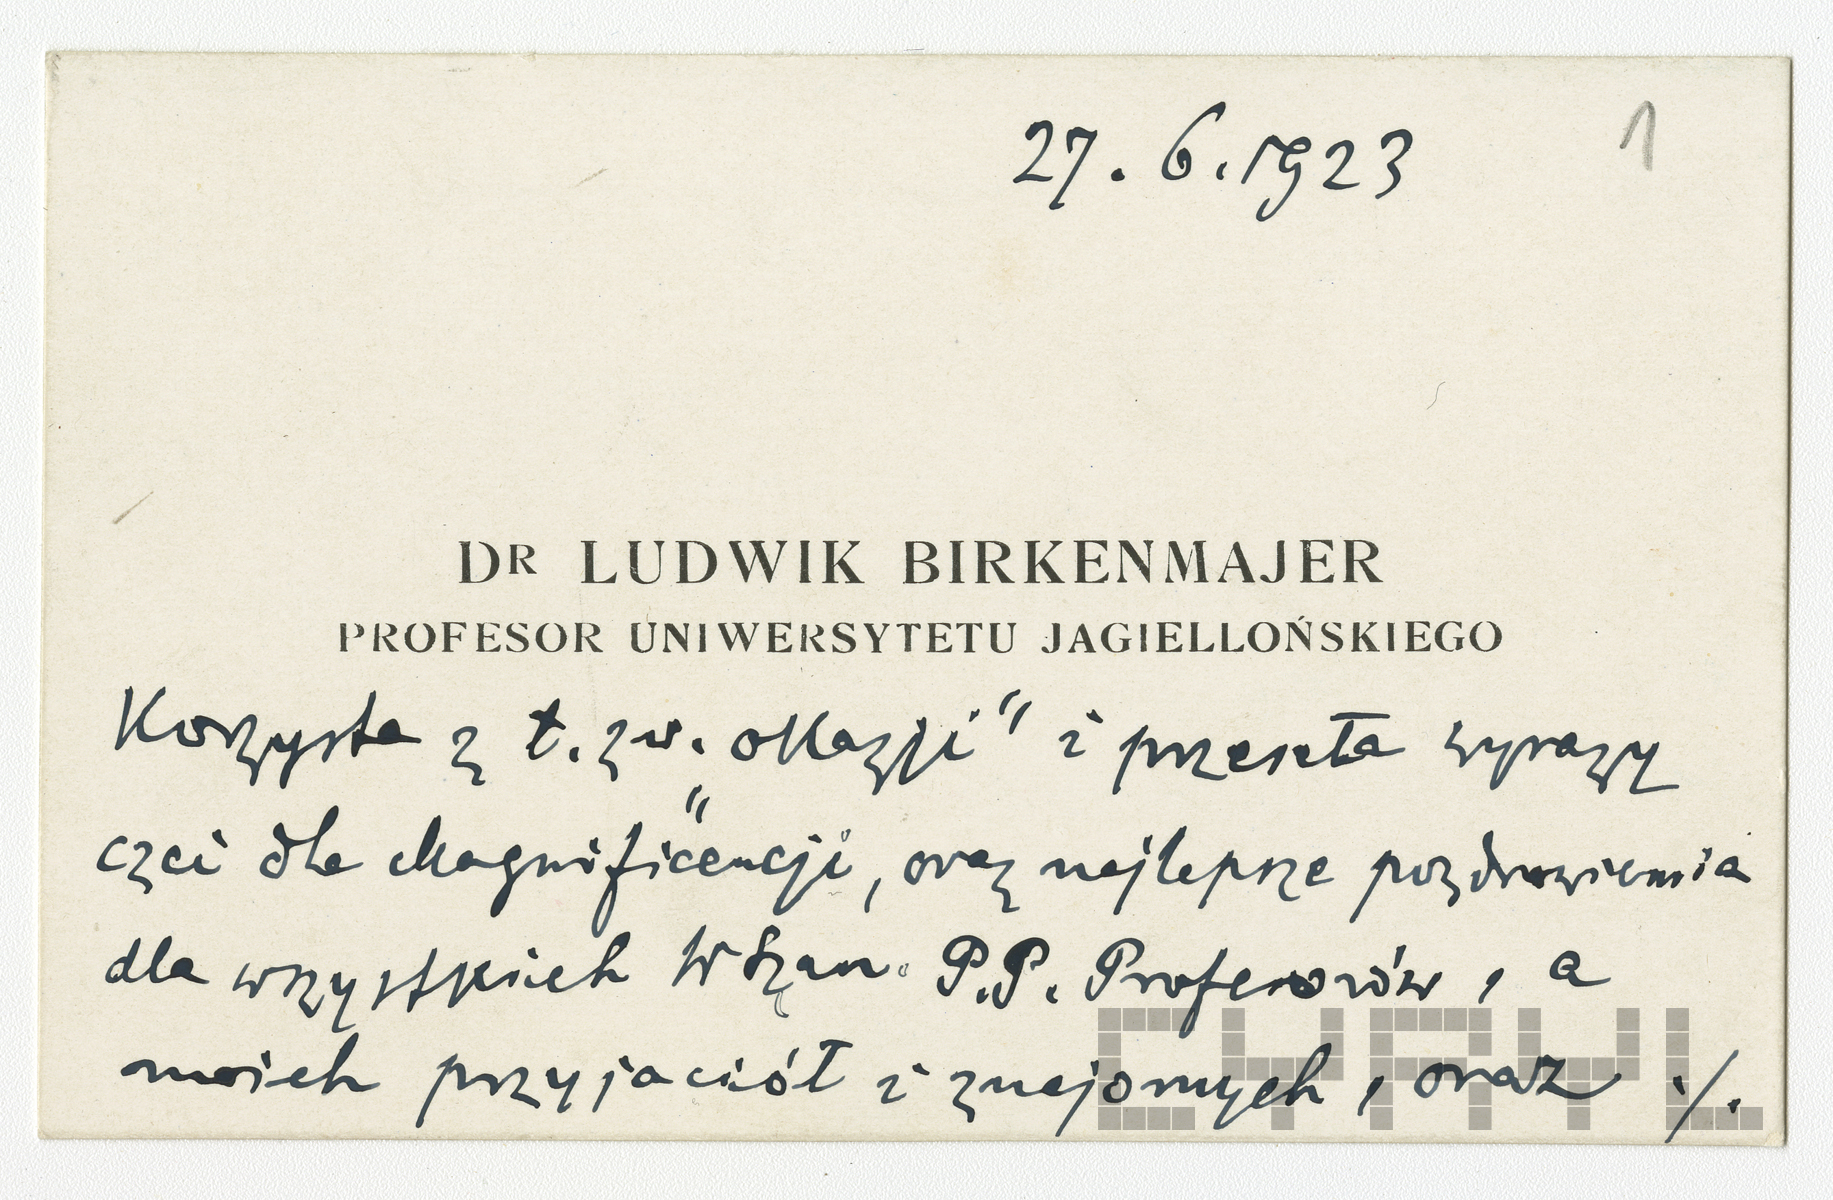 27. 6. 1923
1
DR LUDWIK BIRKENMAJER
PROFESOR UNIWERSYTETU JAGIELLOŃSKIEGO
Korzysta z t. zw. okazji" i przeseła wyrazy
czci dla Magnificencji, oraz najlepsze pozdrowienia
dla wszystkich WSzan. P.P. Profesorów, a
moich przyjaciół i znajomych, oraz ./.
CYRYL